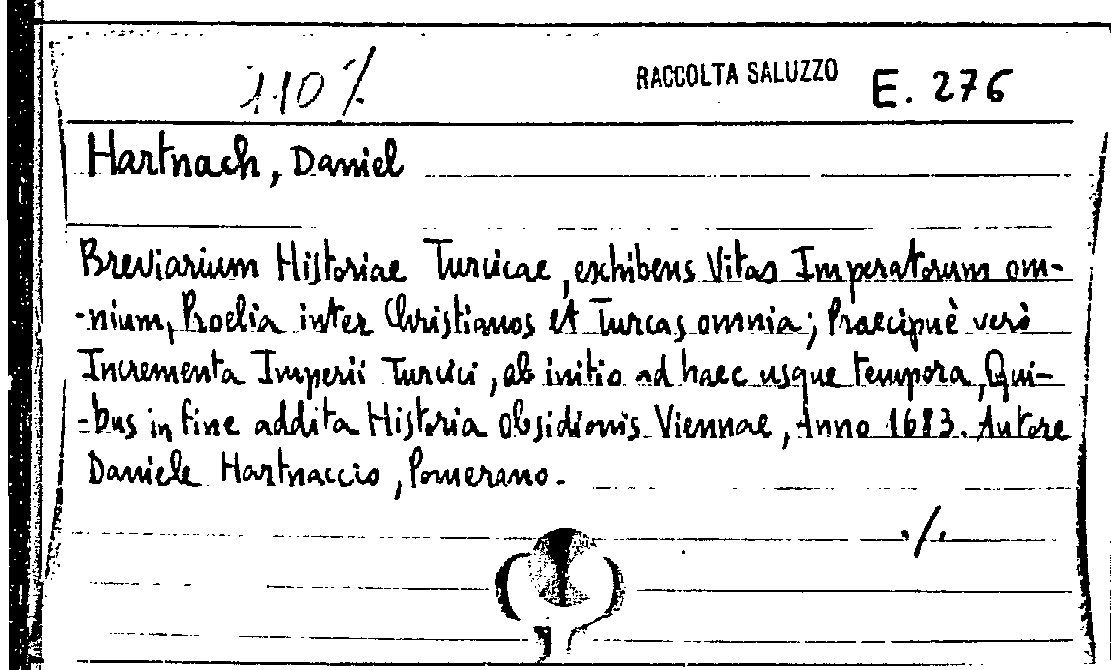 110 %
RACCOLTA SALUZZO E. 276
Hartnach, Daniel
Breviarium Historiae Turcicae, exhibens Vitas Imperatorum om-
-nium, Proelia inter Christianos et Turcas omnia; Praecipuè verò
Incrementa Imperii Turcici, ab initio ad haec usque tempora, Qui-
-bus in fine addita Historia Obsidionis Viennae, Anno 1683. Autore
Daniele Hartnaccio, Pomerano.
./.